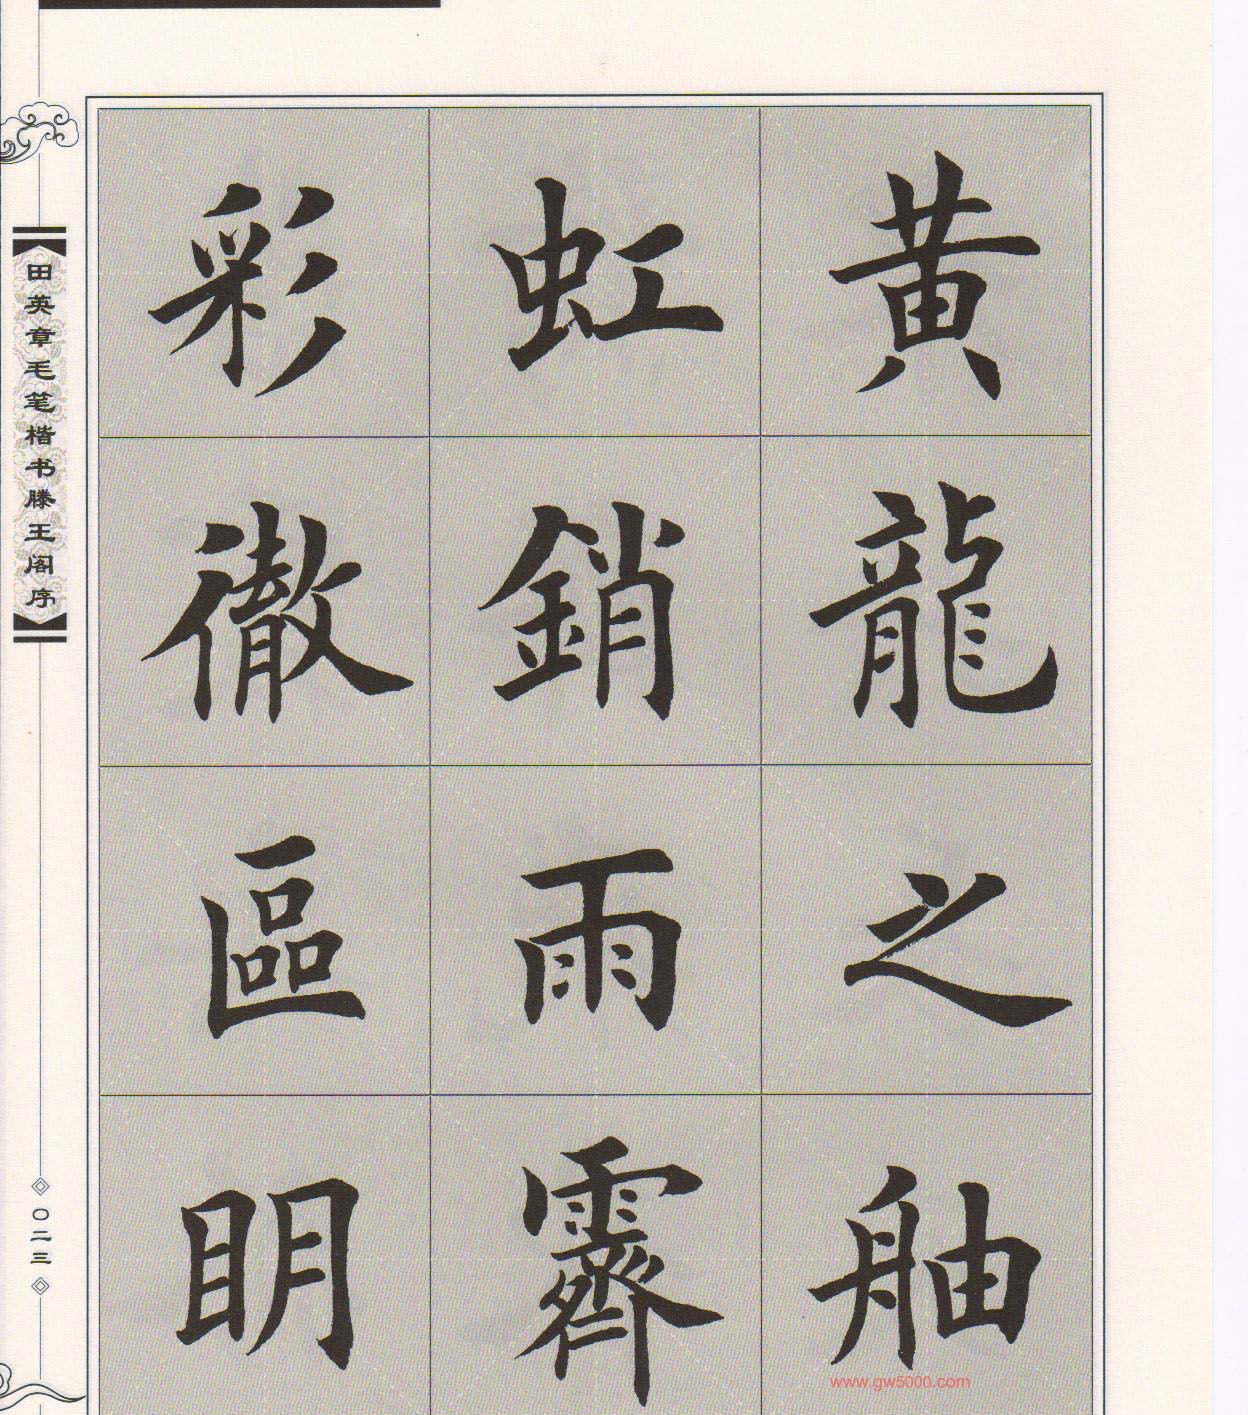 黄龍之舳
虹銷雨霽
彩徹區明
田英章毛笔楷书滕王阁序
〇二三
www.gw5000.com